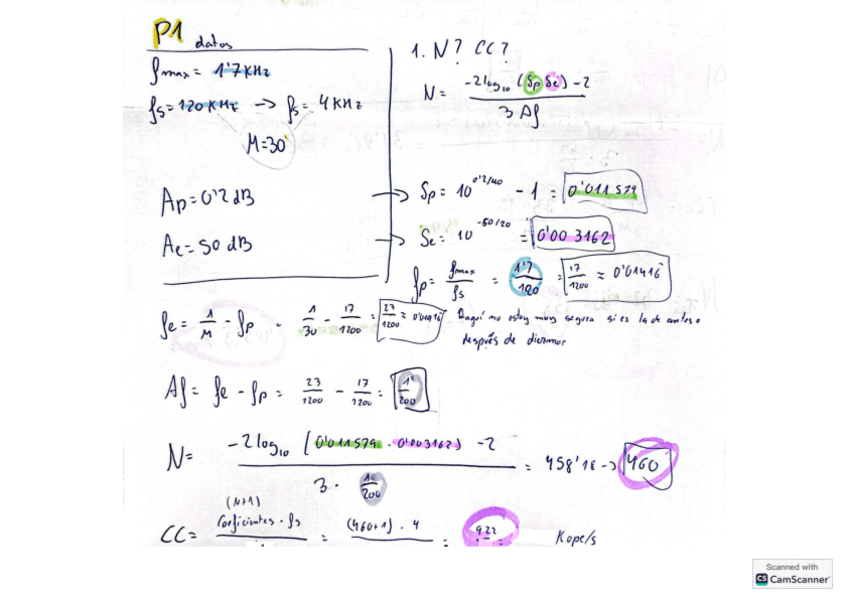 P1 datos
fmax = 1'7 KHz
fs = 120 KHz → fs = 4 KHz
M=30
Ap = 0'2 dB
Ae = 50 dB
1. N? CC?
N = -2log10 (δp δe) - 2 / 3 Δf
→ δp = 10^0'2/40 - 1 = 0'011579
→ δe = 10^-50/20 = 0'003162
fp = fmax / fs = 1'7 / 120 = 17 / 1200 ≈ 0'01416
fe = 1/M - fp = 1/30 - 17/1200 = 23/1200 ≈ 0'01916
Δf = fe - fp = 23/1200 - 17/1200 = 1/200
N = -2log10 (0'011579 · 0'003162) - 2 / 3 · 1/200 = 458'18 → 460
(N+1)
CC = Coeficientes · fs = (460+1) · 4 = 922 Kope/s
Scanned with
CS CamScanner